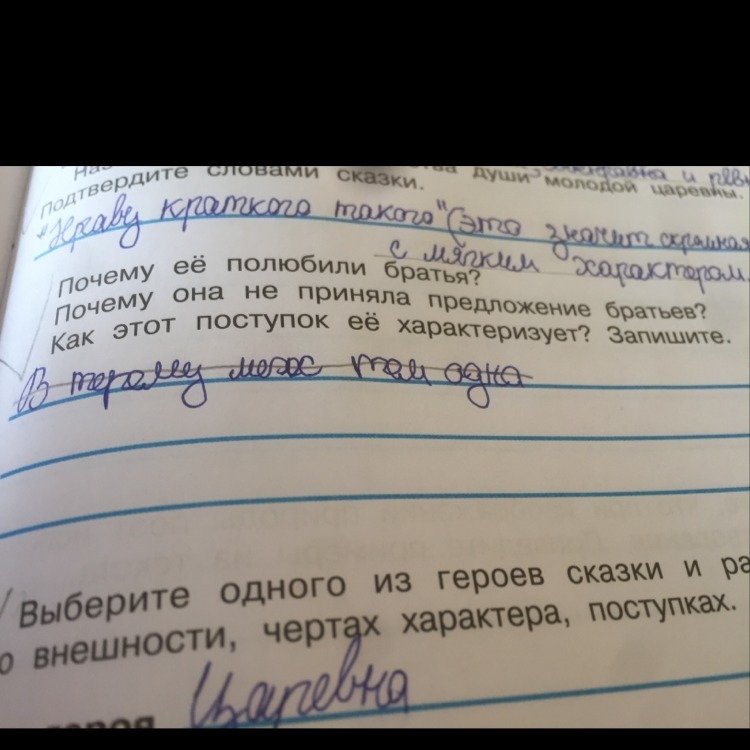 души молодой царевны.
подтвердите словами сказки.
"Нраву кроткого такого" (это значит скромная
с мягким характером
Почему её полюбили братья?
Почему она не приняла предложение братьев?
Как этот поступок её характеризует? Запишите.
там одна
Выберите одного из героев сказки и ра
о внешности, чертах характера, поступках.
героя Царевна